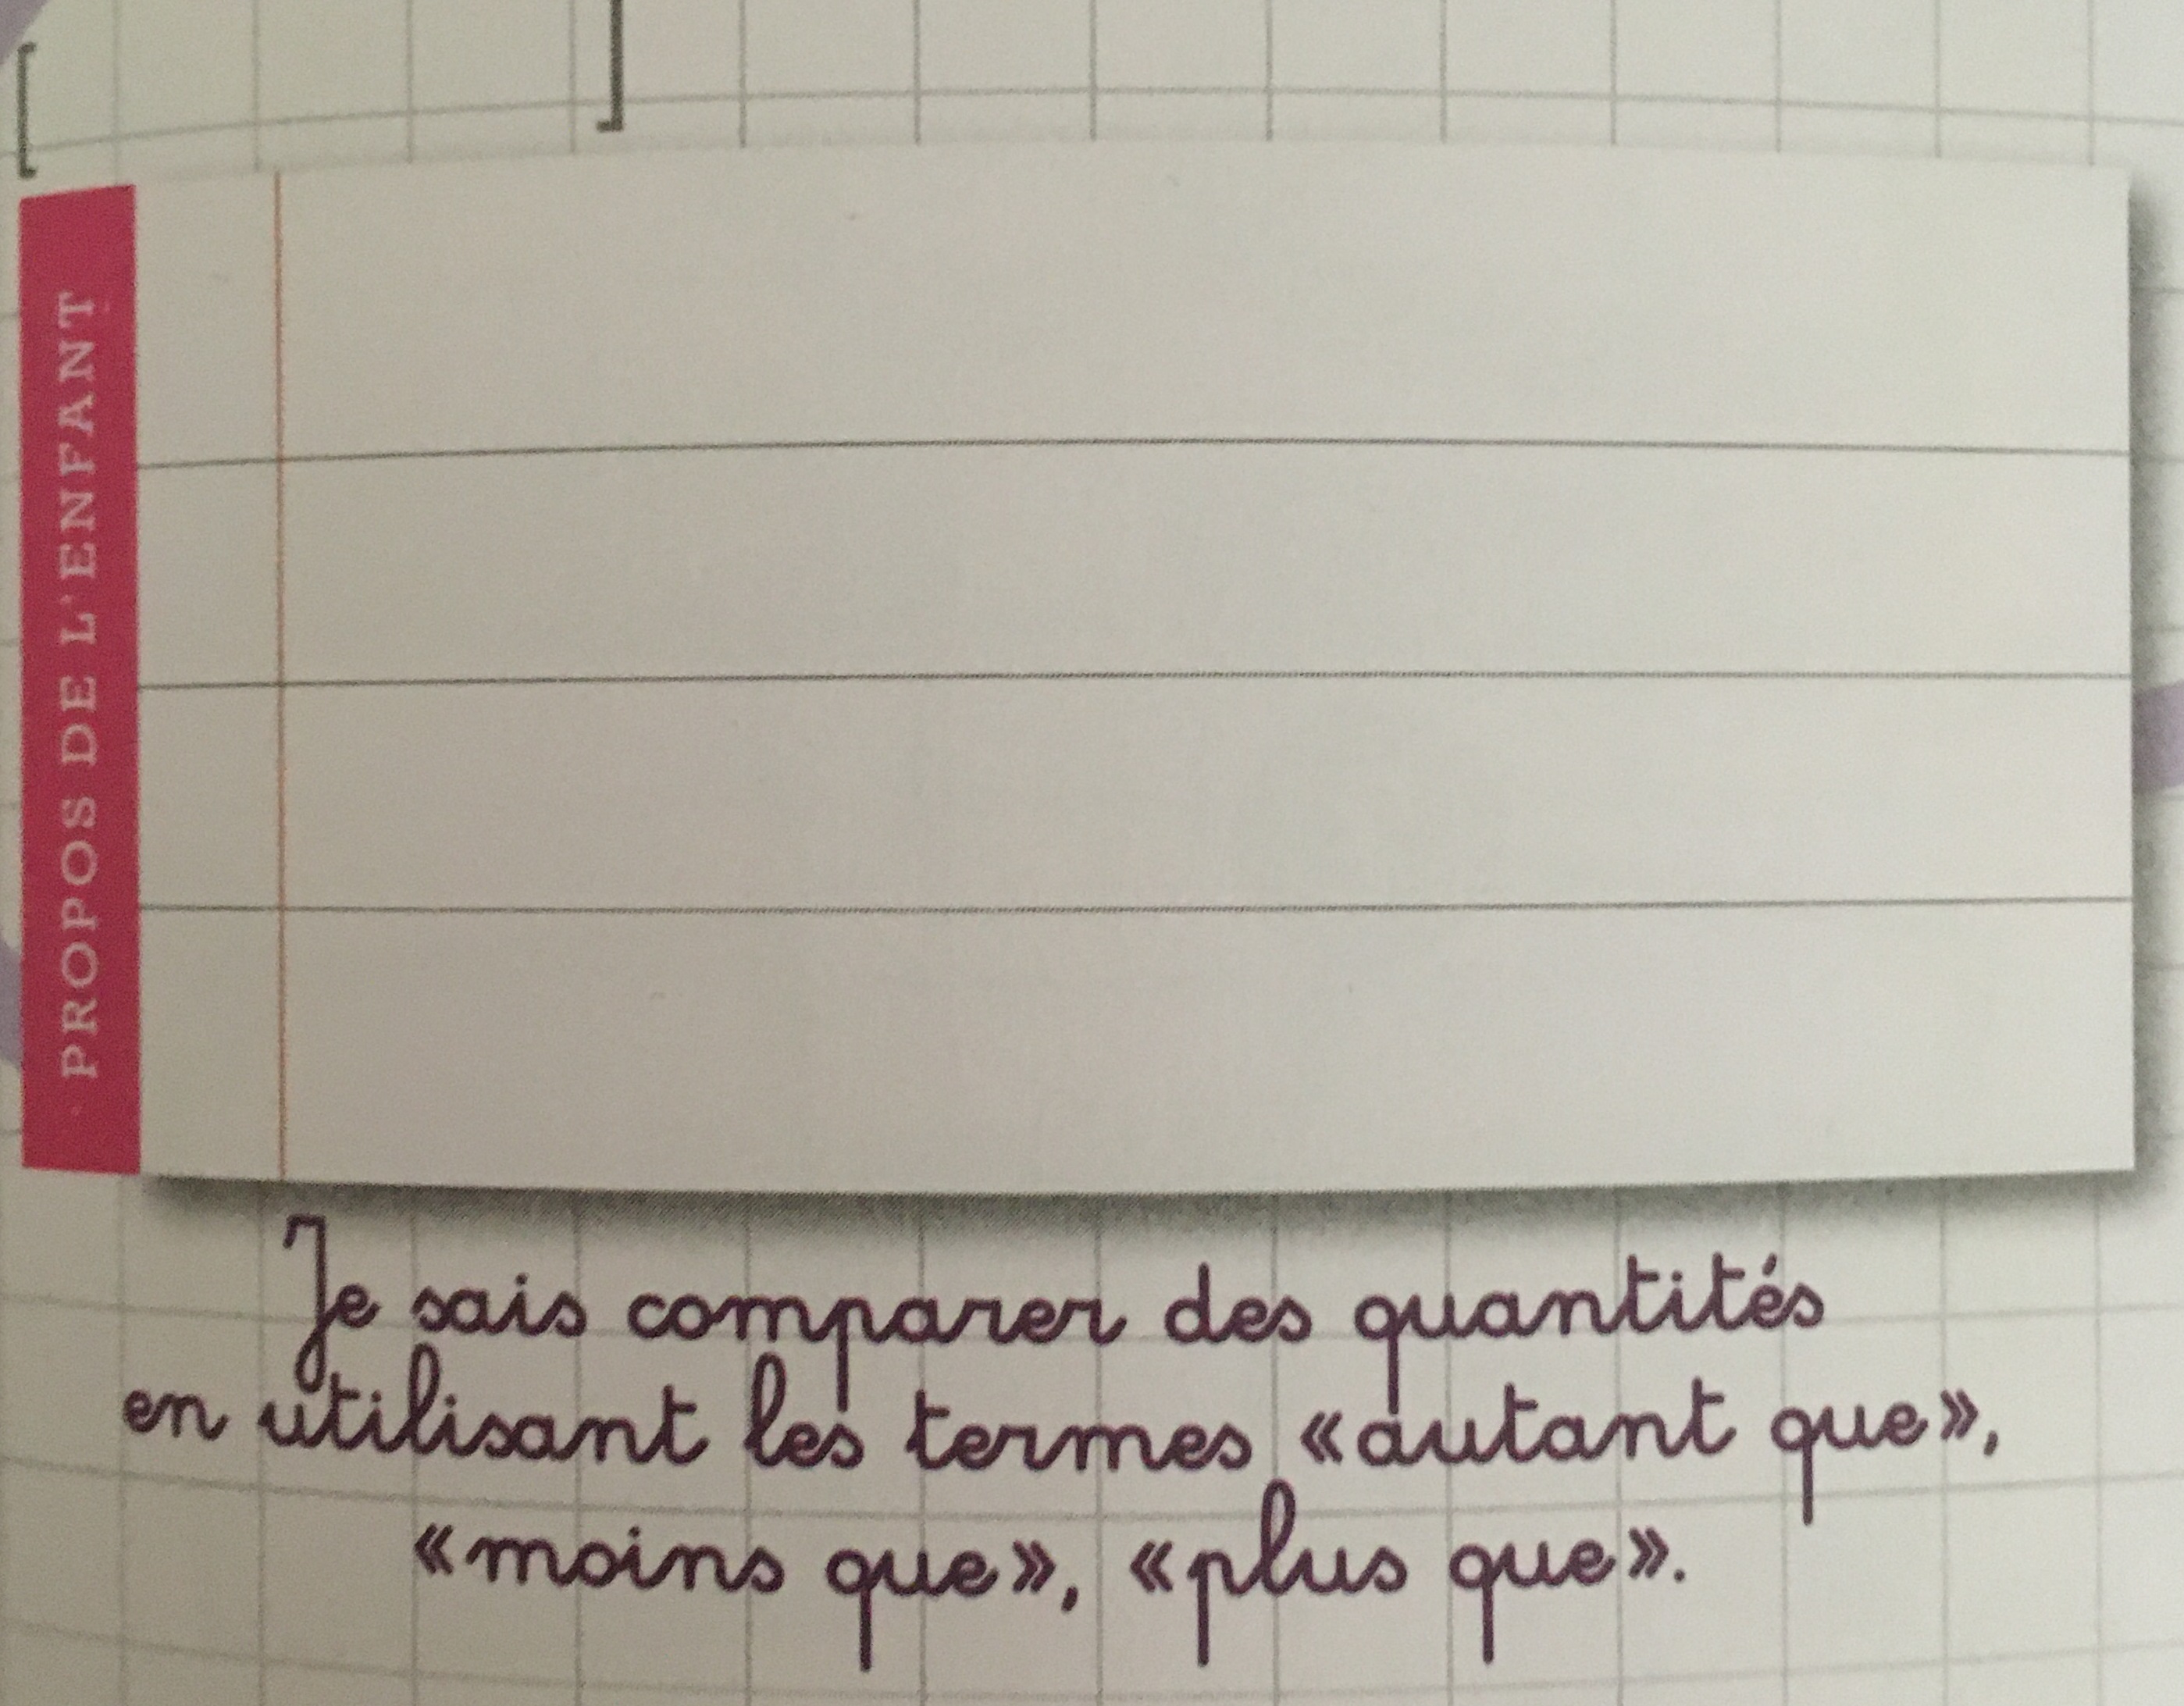 PROPOS DE L'ENFANT
Je sais comparer des quantités
en utilisant les termes «autant que»,
«moins que», «plus que».